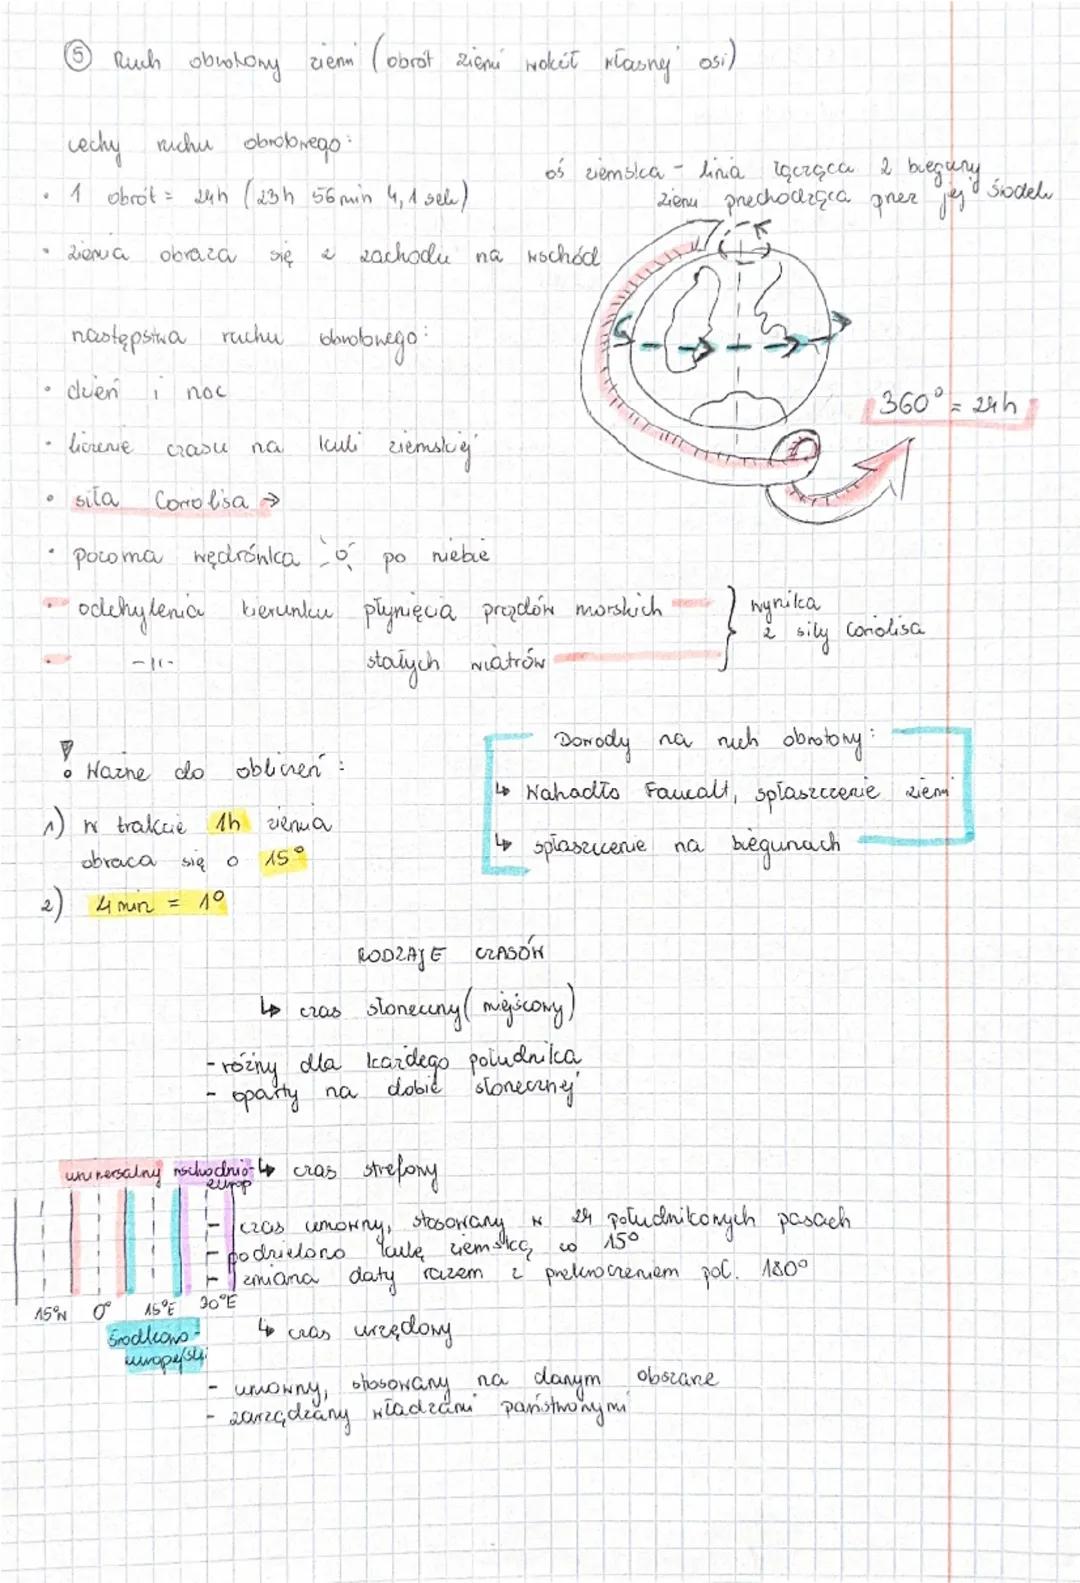 ⑤ Ruch obrotowy ziemi (obrót ziemi wokół własnej osi)
cechy ruchu obrotowego:
• 1 obrót = 24h (23h 56min 4,1 sek)
• ziemia obraca się z zachodu na wschód
oś ziemska - linia łącząca 2 bieguny
ziemi przechodząca przez jej środek
360° = 24h
następstwa ruchu obrotowego:
• dzień i noc
• liczenie czasu na kuli ziemskiej
• siła Coriolisa →
• pozorna wędrówka po niebie
• odchylenia kierunku płynięcia prądów morskich
• -11- stałych wiatrów
wynika
z siły Coriolisa
! Ważne do obliczeń:
1) w trakcie 1h ziemia
obraca się o 15°
2) 4 min = 1°
Dowody na ruch obrotowy:
↳ Wahadło Faucalt, spłaszczenie ziemi
↳ spłaszczenie na biegunach
RODZAJE CZASÓW
↳ czas słoneczny (miejscowy)
- różny dla każdego południka
- oparty na dobie słonecznej
↳ czas strefowy
- czas umowny, stosowany w 24 południkowych pasach
- podzielono kulę ziemską co 15°
- zmiana daty razem z przekroczeniem poł. 180°
uniwersalny
wschodnio-
europ
15°W 0° 15°E 30°E
środkowo-
europejski
↳ czas urzędowy
- umowny, stosowany na danym obszarze
- zarządzany władzami państwowymi